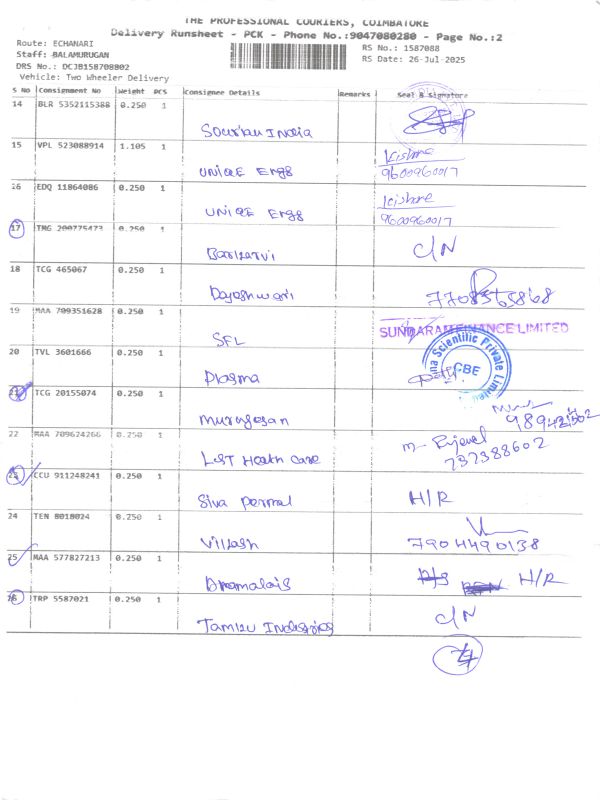 THE PROFESSIONAL COURIERS, COIMBATORE
Delivery Runsheet - PCK - Phone No.:9047080280 - Page No.:2
Route: ECHANARI
RS No.: 1587088
Staff: BALAMURUGAN
RS Date: 26-Jul-2025
DRS No.: DCJB158708802
Vehicle: Two Wheeler Delivery
S No Consignment No Weight PCS Consignee Details Remarks Seal & Signature
14 BLR 5352115388 0.250 1
15 VPL 523088914 1.105 1 Kishore
UNIQE Engg 9600960017
16 EDQ 11864086 0.250 1 Kishore
UNIQE Engg 9600960017
17 TMG 200775473 0.250 1 C/N
18 TCG 465067 0.250 1
Rajeshwari 7708565868
19 MAA 709351628 0.250 1 SUNDARAM FINANCE LIMITED
SFL
20 TVL 3601666 0.250 1 Scientific Private Limited CBE
Plasma
21 TCG 20155074 0.250 1
Murugesan
22 MAA 709624266 0.250 1
Health Care 737388602
23 CCU 911248241 0.250 1 H/R
Siva Permal
24 TEN 8018024 0.250 1
Villash 7904490138
25 MAA 577827213 0.250 1 H/R
26 TRP 5587021 0.250 1 C/N